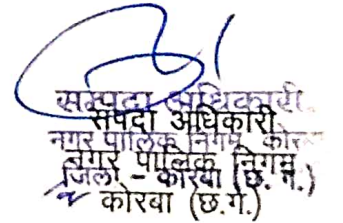 सम्पदा अधिकारी
संपदा अधिकारी
नगर पालिक निगम कोर
नगर पालिक निगम
जिला - कोरबा (छ. ग.)
कोरबा (छ.ग.)